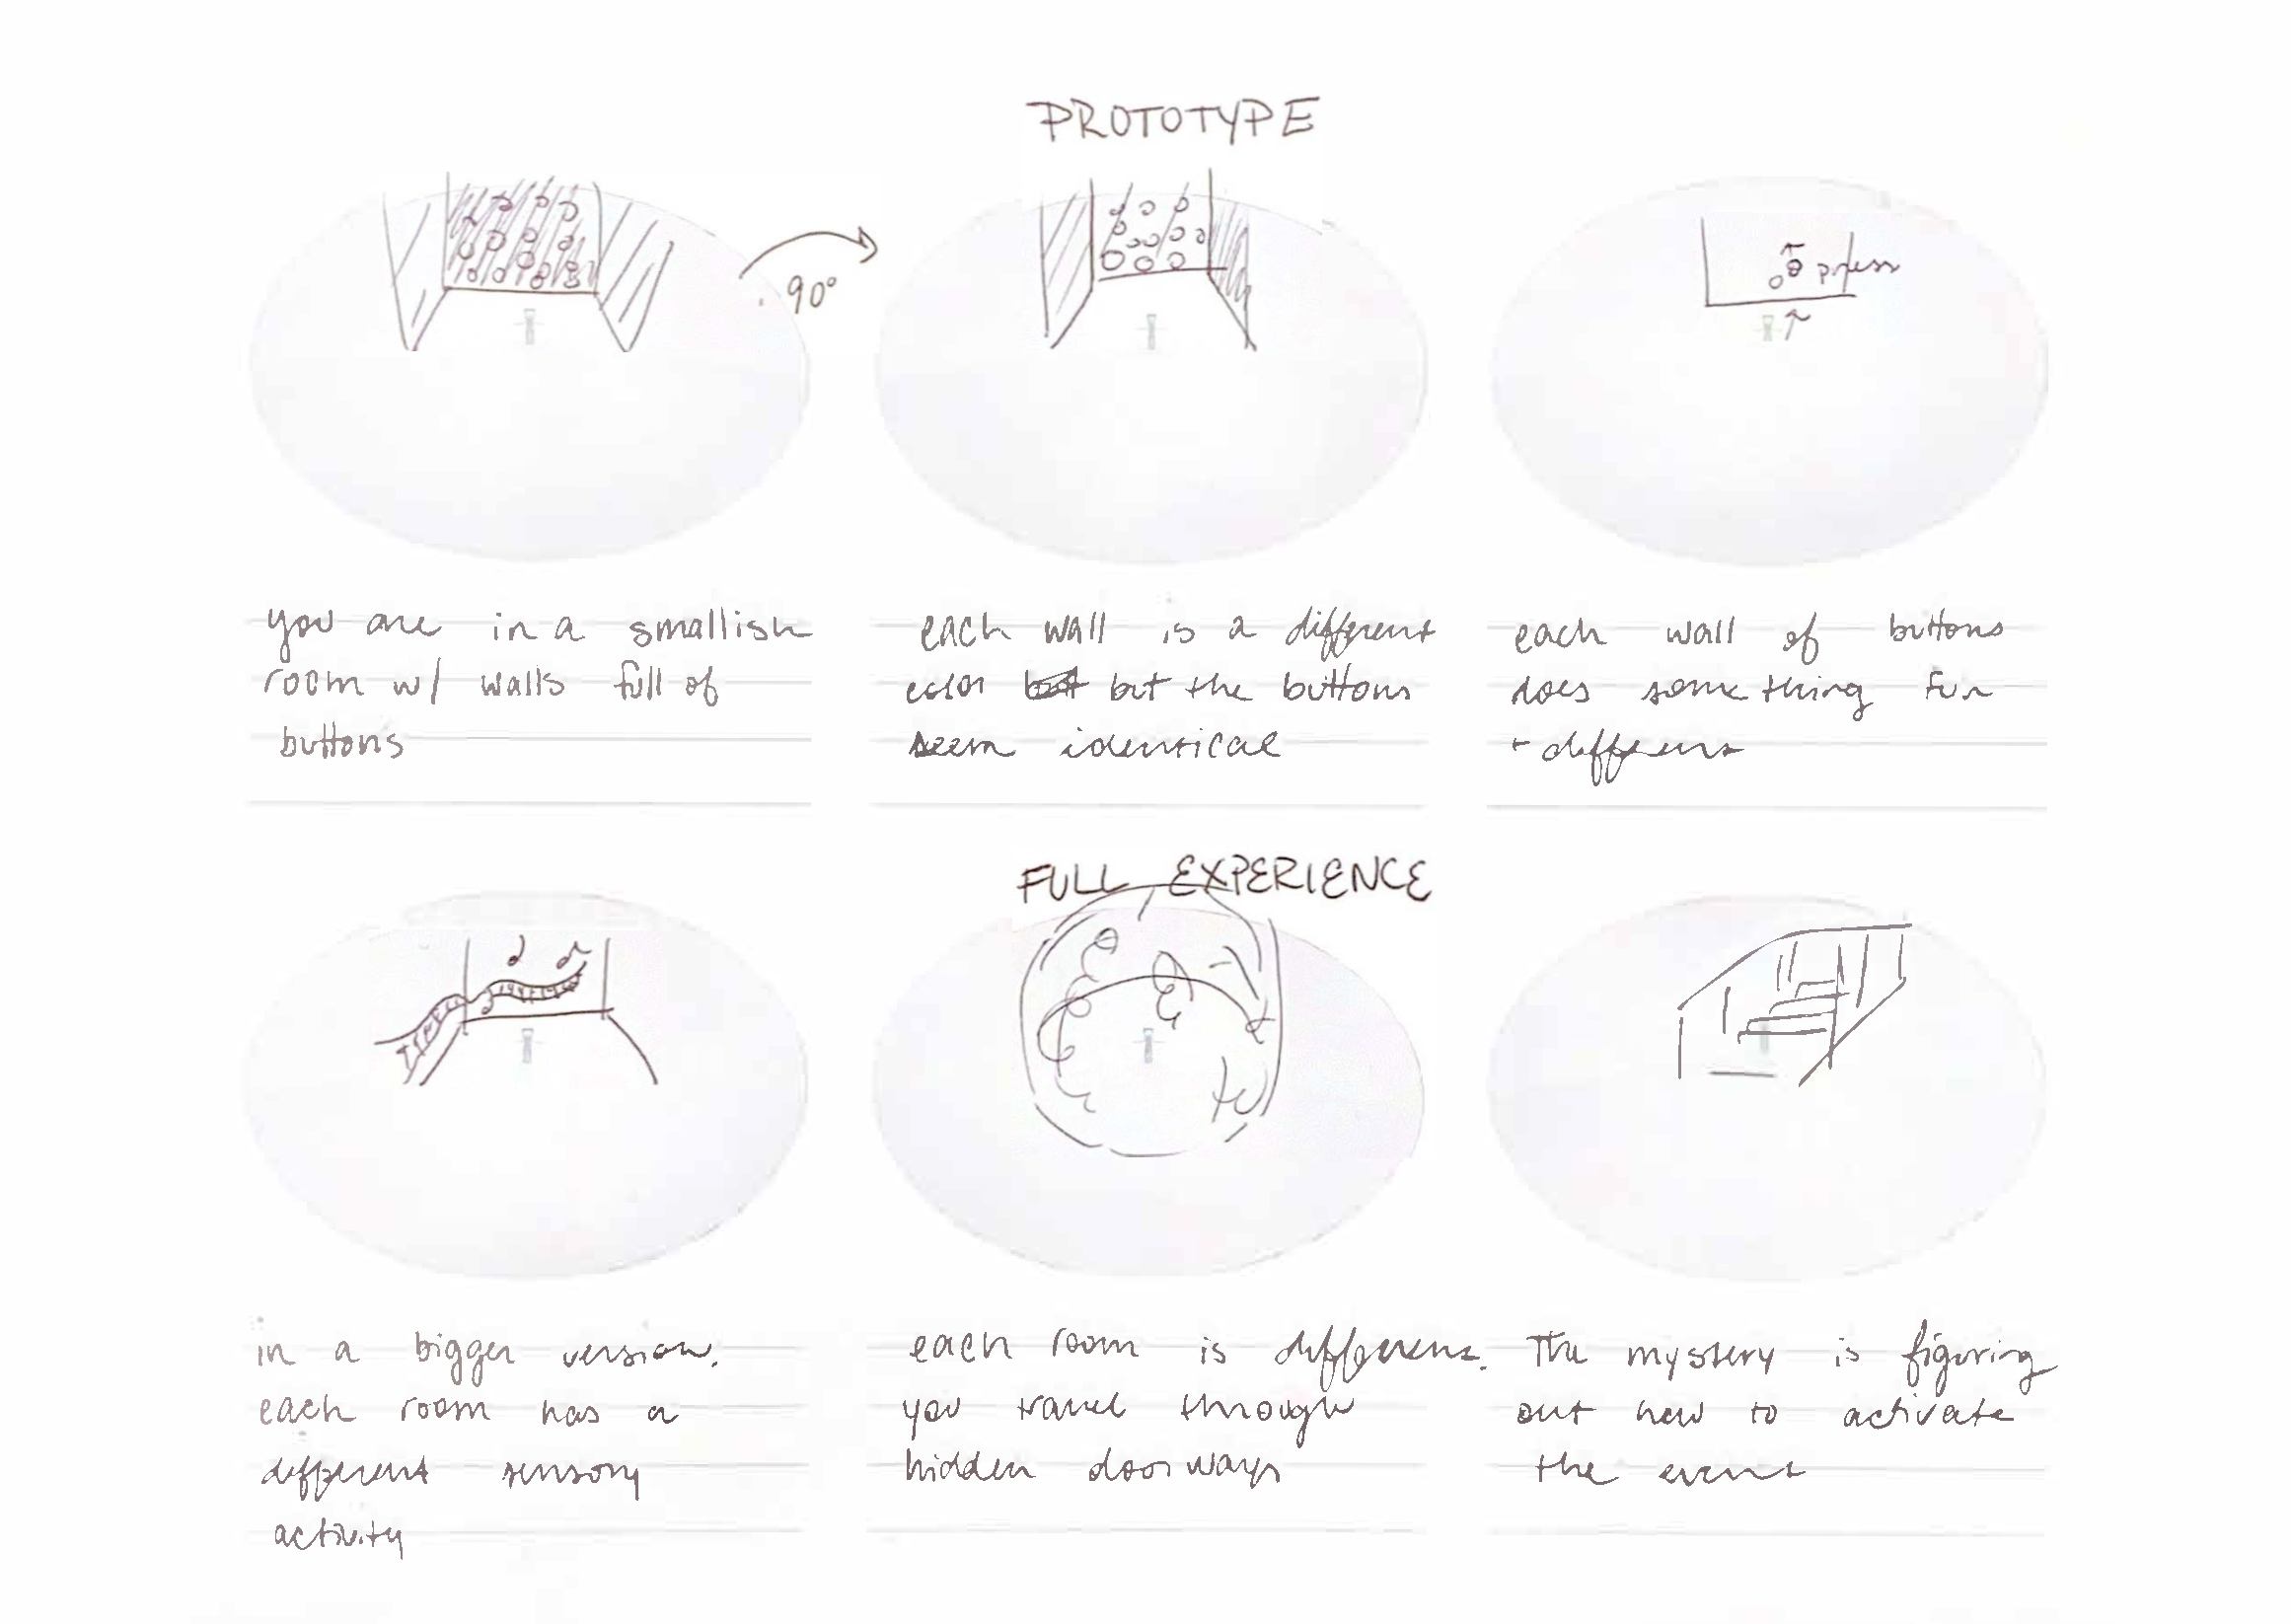 PROTOTYPE
90°
press
you are in a smallish
room w/ walls full of
buttons
each wall is a different
color but but the buttons
seem identical
each wall of buttons
does something fun
+ different
FULL EXPERIENCE
in a bigger version,
each room has a
different sensory
activity
each room is different.
you travel through
hidden doorways
The mystery is figuring
out how to activate
the event